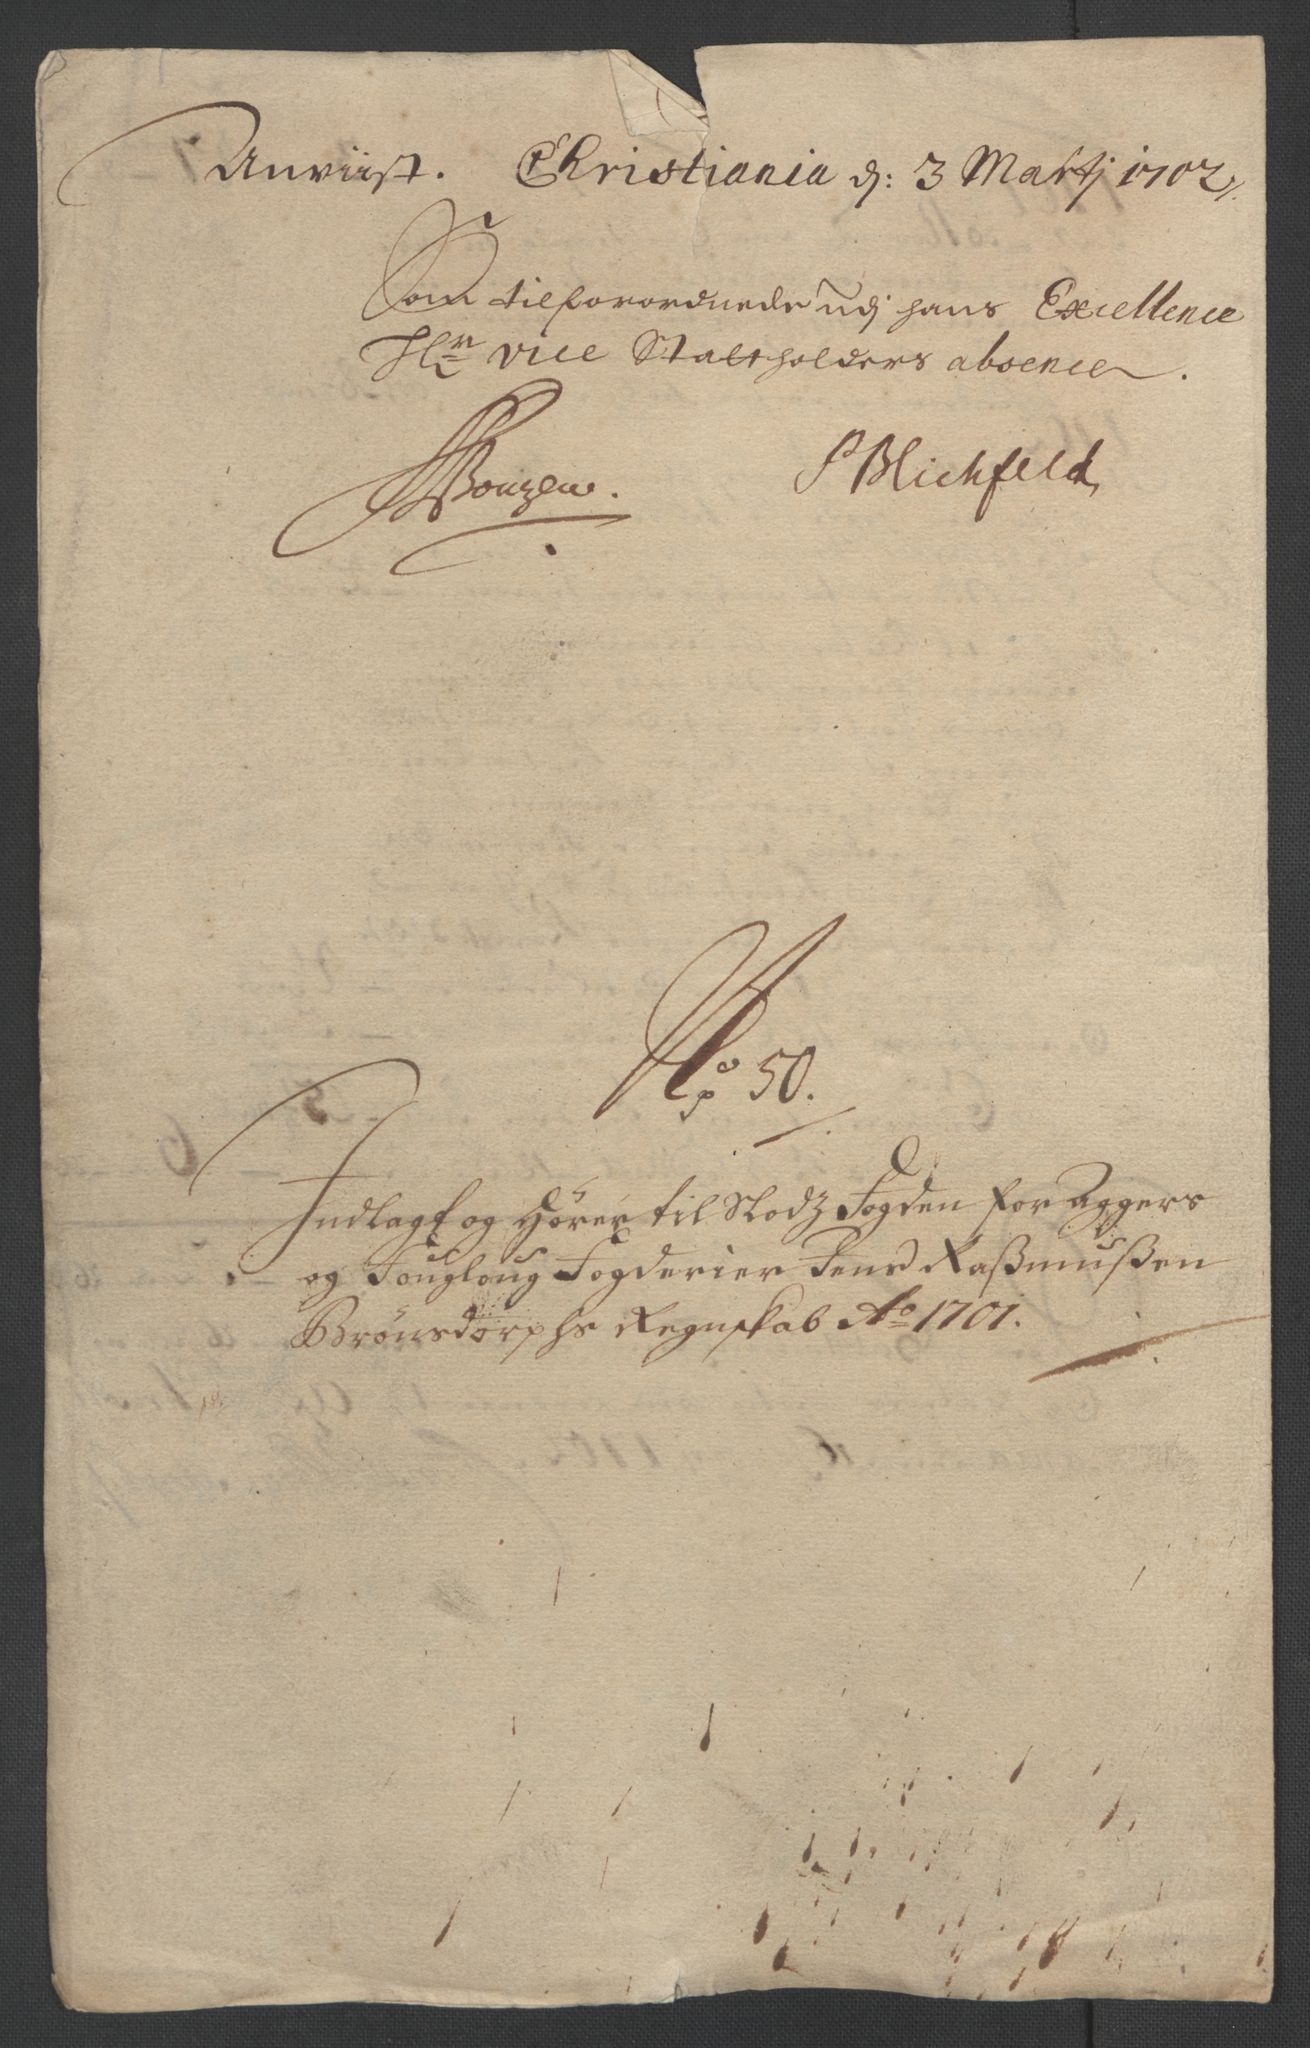 Anviist. Christiania dj: 3 Martj 1702
Som tilforordnede udj hans Excellence
Hr Vice Stattholders absence.
PBlichfeld
No 50.
Indlagt og Hörer til Slodz Fogden for Aggers
og Fougloug Fogderier Jens Raßmußen
Brönsdorphs Regnskab Ao 1701.